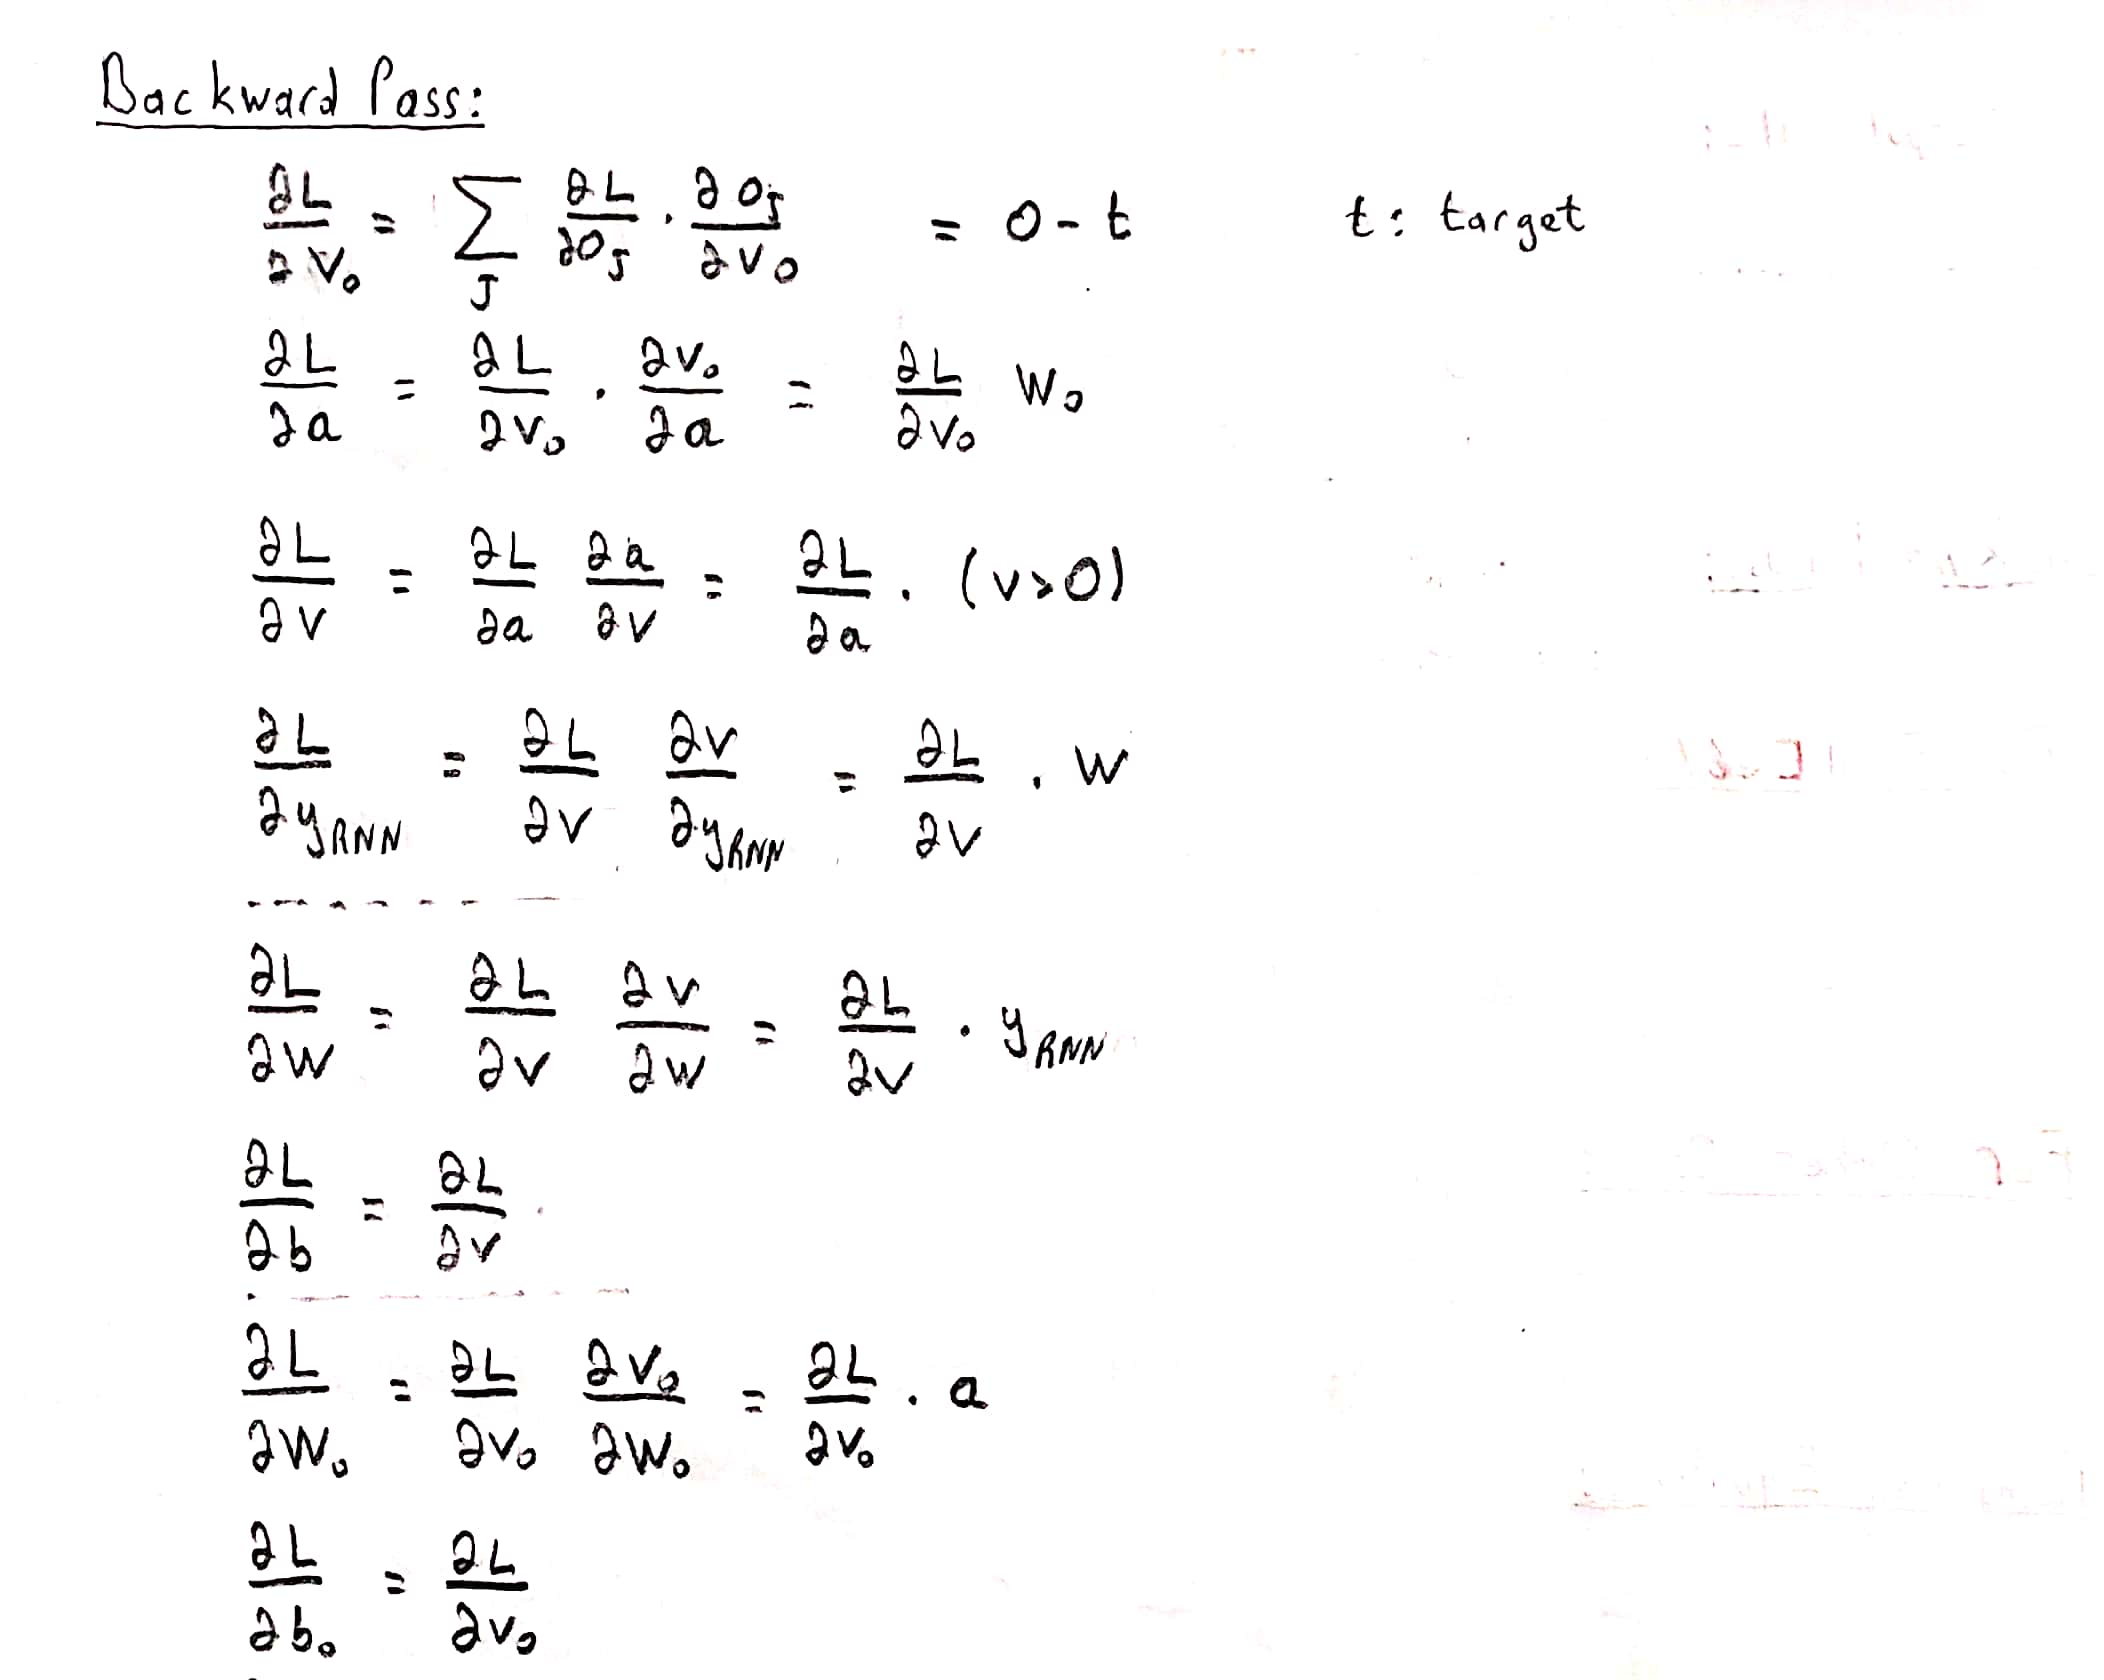 Backward Pass:
∂L/∂V₀ = Σ_J ∂L/∂O_J · ∂O_J/∂V₀ = O - t t: target
∂L/∂a = ∂L/∂V₀ · ∂V₀/∂a = ∂L/∂V₀ W₀
∂L/∂V = ∂L/∂a ∂a/∂V = ∂L/∂a · (V>0)
∂L/∂y_RNN = ∂L/∂V ∂V/∂y_RNN = ∂L/∂V · W
∂L/∂W = ∂L/∂V ∂V/∂W = ∂L/∂V · y_RNN
∂L/∂b = ∂L/∂V
∂L/∂W₀ = ∂L/∂V₀ ∂V₀/∂W₀ = ∂L/∂V₀ · a
∂L/∂b₀ = ∂L/∂V₀